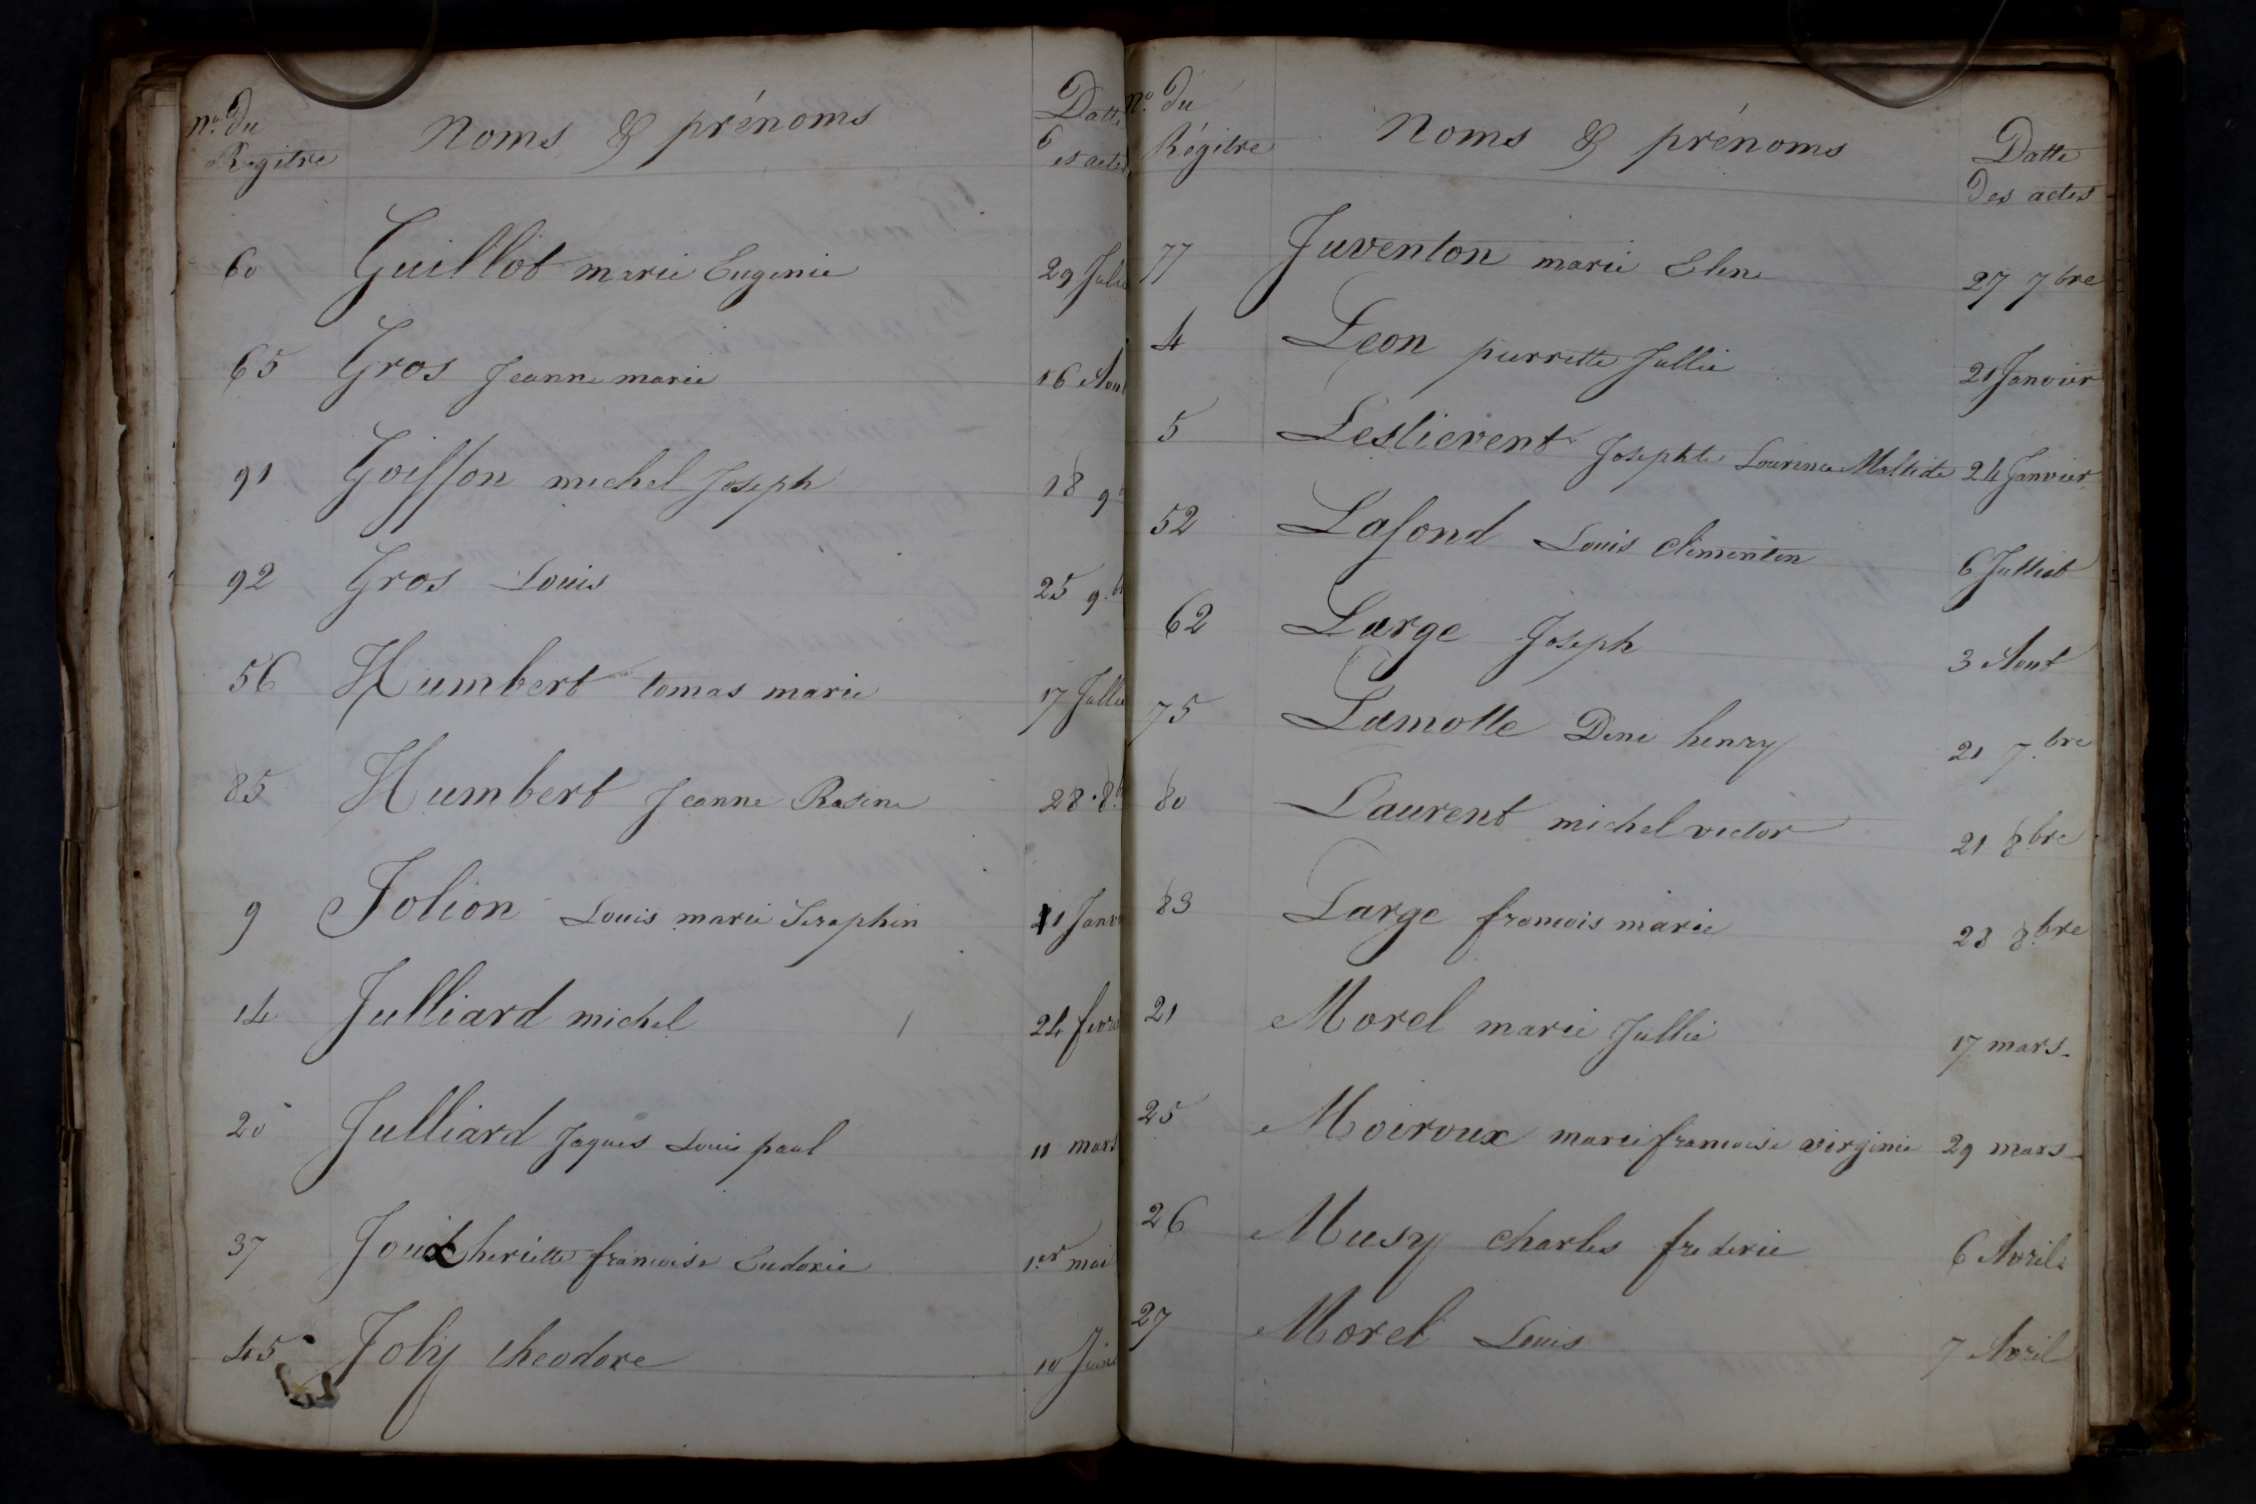 n.º du Regitre Noms & prénoms Datte des actes
60 Guillot marie Eugenie 29 Julie
65 Gros Jeanne marie 16 Aout
91 Goisson michel Joseph 18 9
92 Gros Louis 25 9.b
56 Humbert tomas marie 17 Jullie
85 Humbert Jeanne Rosine 28 8.b
9 Jolion Louis marie Seraphin Janv
14 Julliard michel 24 fevr
20 Julliard Jaques Louis paul 11 mars
37 heriette francoise Eudoxie 1.er mai
45 Joly theodore 10 Juin
n.º du Régitre Noms & prénoms Datte des actes
77 Juventon marie Elene 27 7bre
4 Leon pierrette Jullie 21 Janvier
5 Leslievent Josephte Laurence Mathide 24 Janvier
52 Lafond Louis Clementin 6 Julliet
62 Large Joseph 3 Aout
75 Lamotte Deni henry 21 7.bre
80 Laurent michel victor 21 8bre
83 Large francois marie 23 8.bre
21 Morel marie Jullie 17 mars.
25 Moiroux marie francoise virginie 29 mars
26 Musy charles frederic 6 Avril
27 Morel Louis 7 Avril